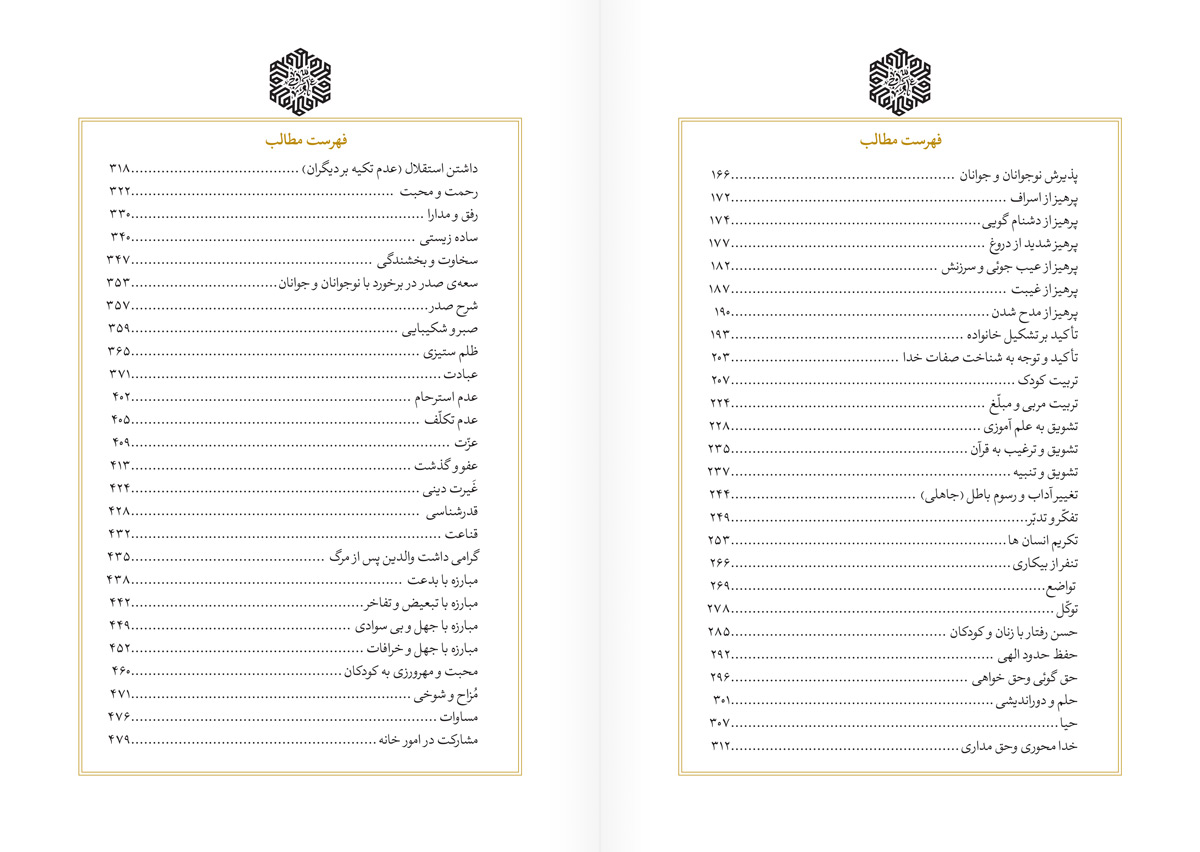 فهرست مطالب
پذیرش نوجوانان و جوانان ......................................................۱۶۶
پرهیز از اسراف ..................................................................۱۷۲
پرهیز از دشنام گویی............................................................۱۷۴
پرهیز شدید از دروغ .............................................................۱۷۷
پرهیز از عیب جوئی و سرزنش ..................................................۱۸۲
پرهیز از غیبت ..................................................................۱۸۷
پرهیز از مدح شدن..............................................................۱۹۰
تأکید بر تشکیل خانواده ........................................................۱۹۳
تأکید و توجه به شناخت صفات خدا ........................................۲۰۳
تربیت کودک....................................................................۲۰۷
تربیت مربی و مبلّغ .............................................................۲۲۴
تشویق به علم آموزی............................................................۲۲۸
تشویق و ترغیب به قرآن........................................................۲۳۵
تشویق و تنبیه...................................................................۲۳۷
تغییر آداب و رسوم باطل (جاهلی) ............................................۲۴۴
تفکّر و تدبّر......................................................................۲۴۹
تکریم انسان ها..................................................................۲۵۳
تنفر از بیکاری...................................................................۲۶۶
تواضع............................................................................۲۶۹
توکّل.............................................................................۲۷۸
حسن رفتار با زنان و کودکان ...................................................۲۸۵
حفظ حدود الهی ...............................................................۲۹۲
حق گوئی وحق خواهی ........................................................۲۹۶
حلم و دوراندیشی...............................................................۳۰۱
حیا...............................................................................۳۰۷
خدا محوری وحق مداری.......................................................۳۱۲
فهرست مطالب
داشتن استقلال (عدم تکیه بر دیگران) .......................................۳۱۸
رحمت و محبت ...............................................................۳۲۲
رفق و مدارا......................................................................۳۳۰
ساده زیستی ....................................................................۳۴۰
سخاوت و بخشندگی ..........................................................۳۴۷
سعه‌ی صدر در برخورد با نوجوانان و جوانان..................................۳۵۳
شرح صدر.......................................................................۳۵۷
صبر و شکیبایی ................................................................۳۵۹
ظلم ستیزی .....................................................................۳۶۵
عبادت...........................................................................۳۷۱
عدم استرحام ...................................................................۴۰۲
عدم تکلّف .....................................................................۴۰۵
عزّت .............................................................................۴۰۹
عفو و گذشت...................................................................۴۱۳
غَیرت دینی .....................................................................۴۲۴
قدرشناسی .....................................................................۴۲۸
قناعت ..........................................................................۴۳۲
گرامی داشت والدین پس از مرگ .............................................۴۳۵
مبارزه با بدعت .................................................................۴۳۸
مبارزه با تبعیض و تفاخر........................................................۴۴۲
مبارزه با جهل و بی سوادی ....................................................۴۴۹
مبارزه با جهل و خرافات........................................................۴۵۲
محبت و مهرورزی به کودکان..................................................۴۶۰
مُزاح و شوخی...................................................................۴۷۱
مساوات.........................................................................۴۷۶
مشارکت در امور خانه..........................................................۴۷۹